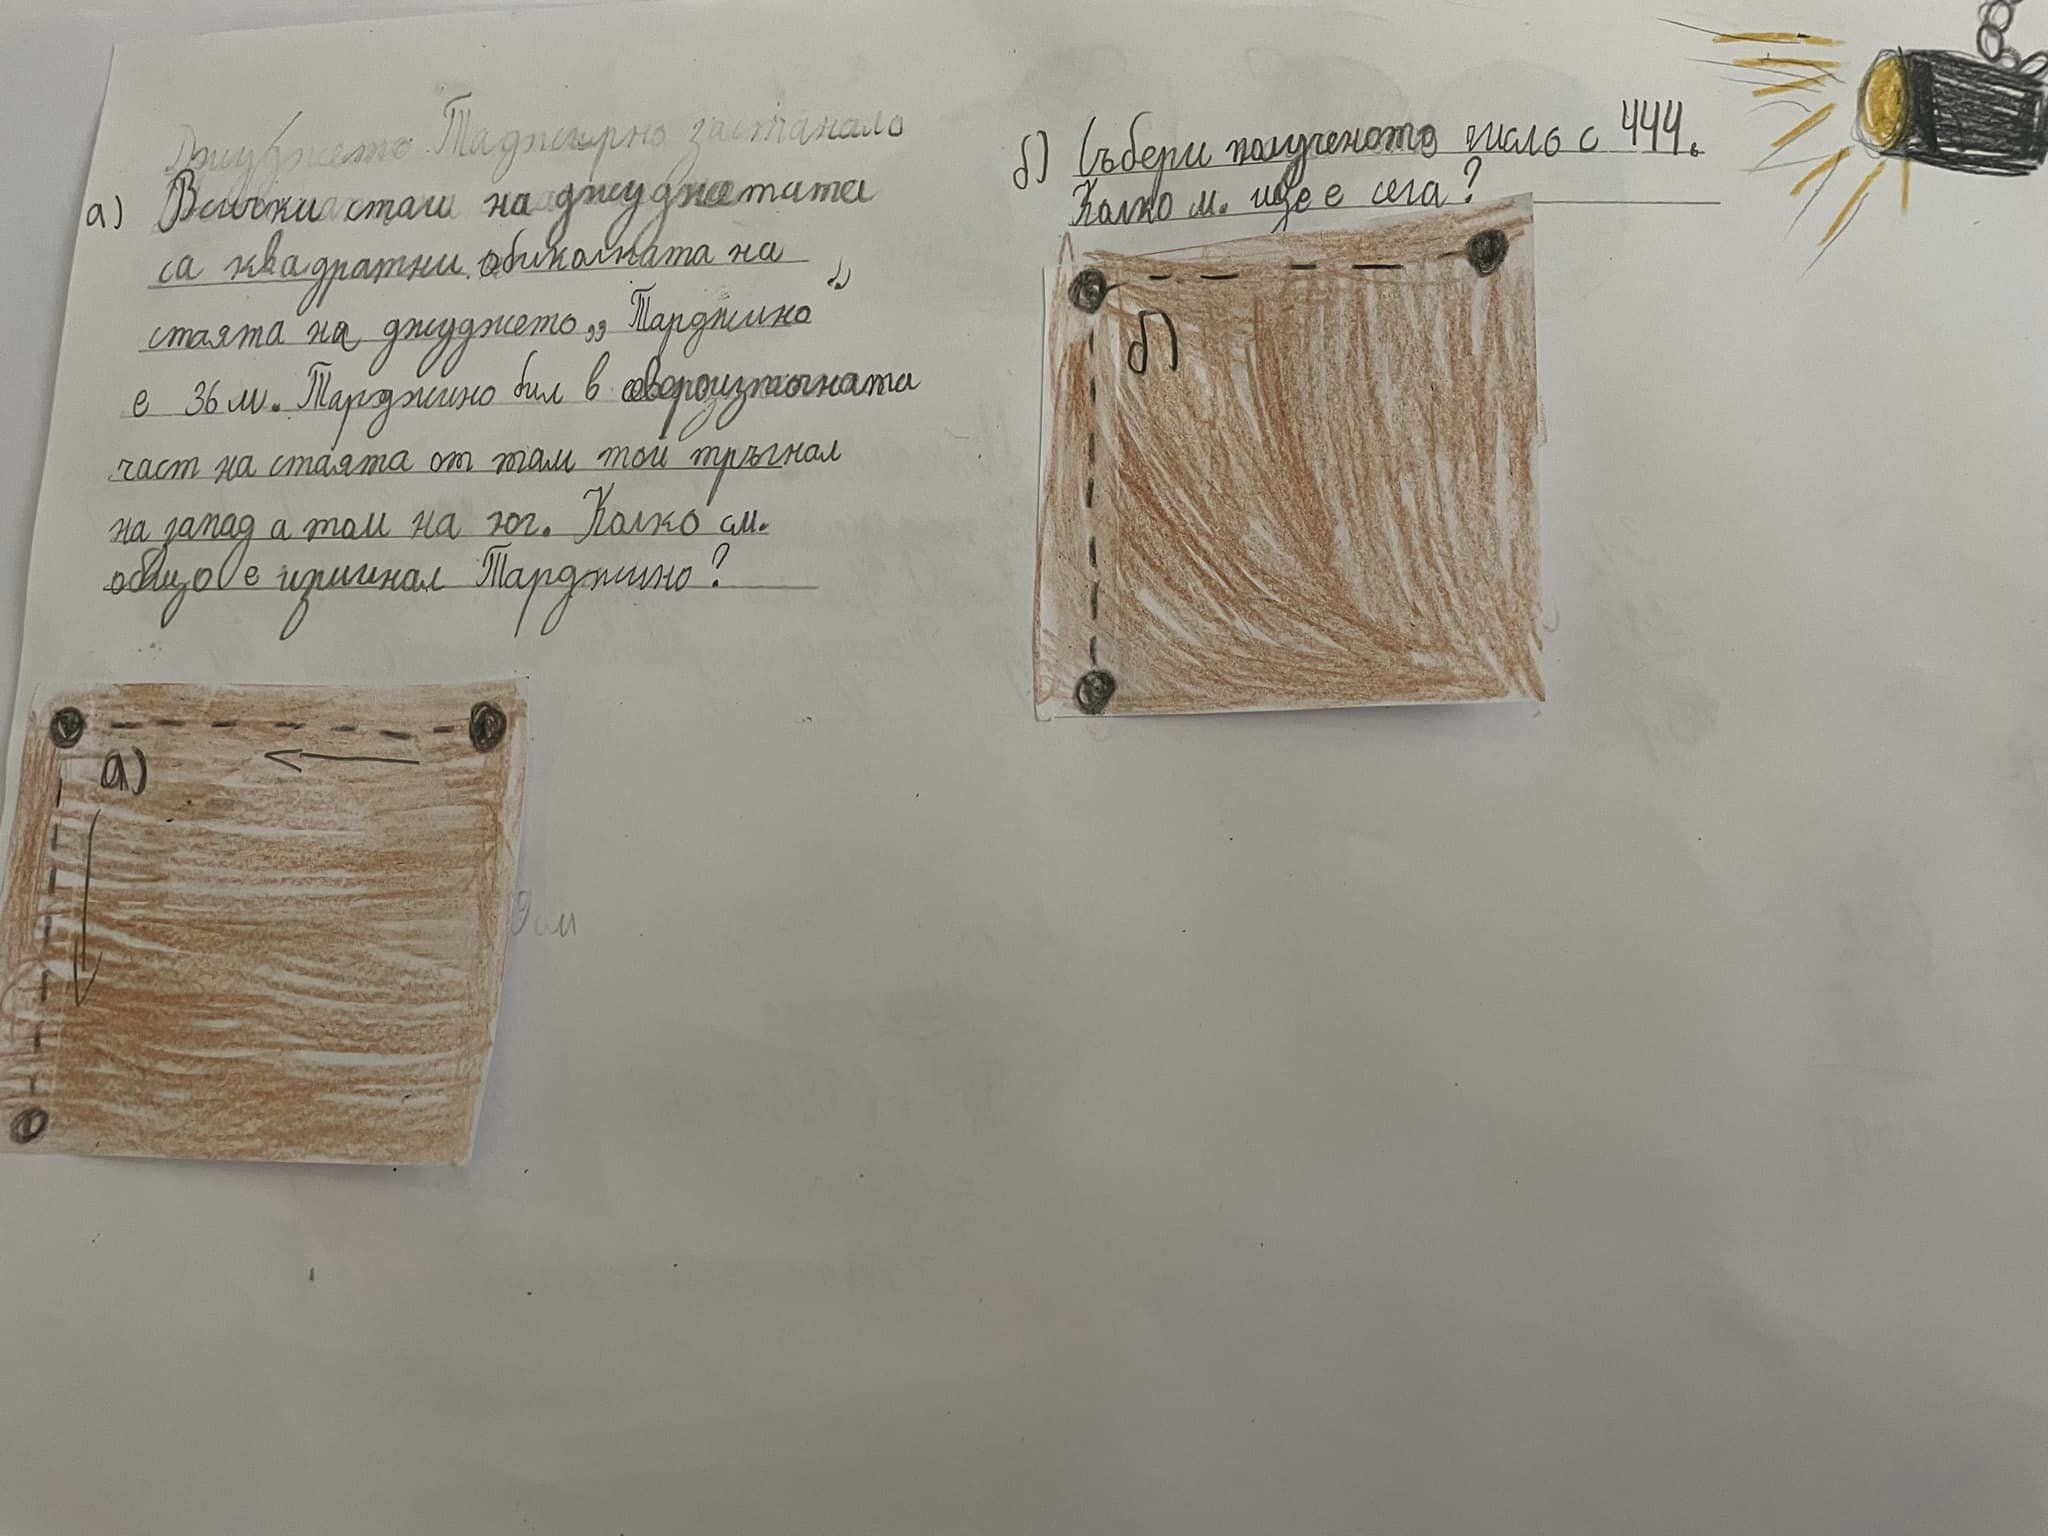 Джуджето Таджирно застанало
а) Всички стаи на джуджетата
са квадратни. обиколката на
стаята на джуджето „Тарджино“
е 36 м. Тарджино бил в североизточната
част на стаята от там той тръгнал
на запад а там на юг. Колко см.
общо е изминал Тарджино?
а)
9 см
б) Събери полученото число с 444.
Колко м. изв е сега?
б)